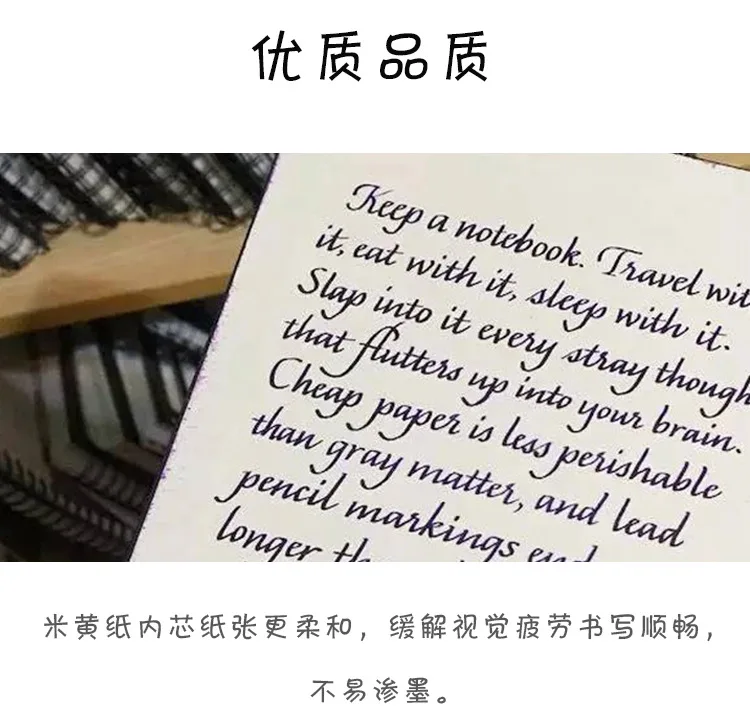 优质品质
Keep a notebook. Travel
it, eat with it, sleep with it.
Slap into it every stray
that flutters up into your brain.
Cheap paper is less perishable
than gray matter, and lead
pencil markings
longer
米黄纸内芯纸张更柔和，缓解视觉疲劳书写顺畅，
不易渗墨。